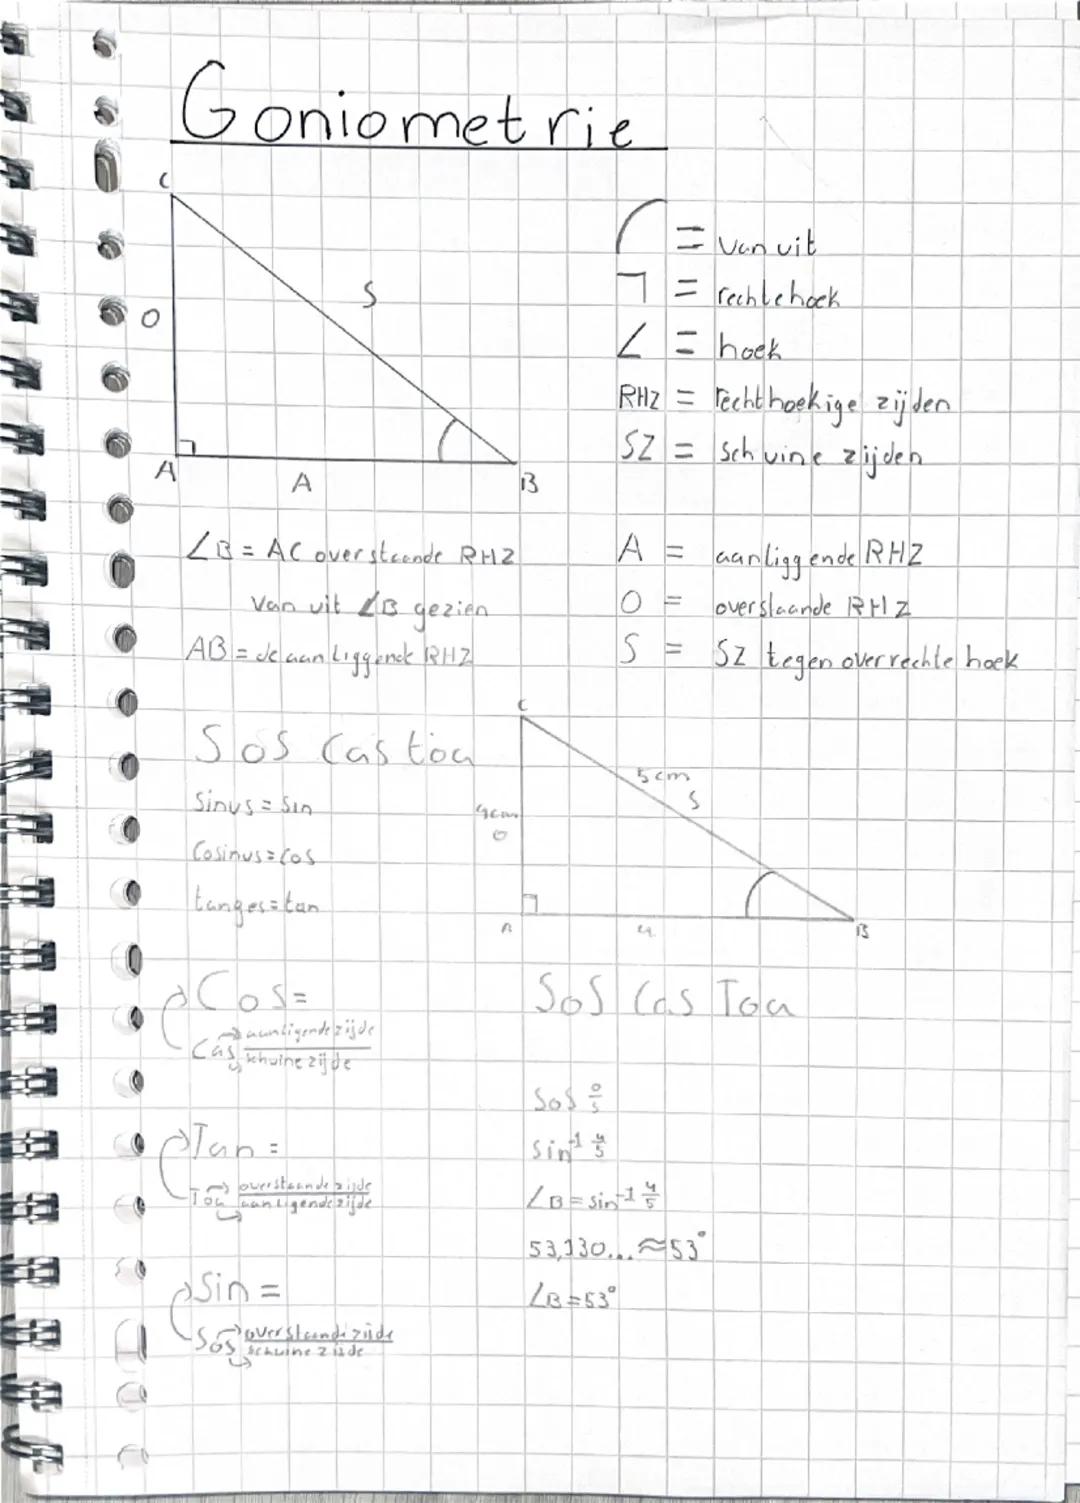 Goniometrie
C
S
O
A
A
B
⌒ = Van uit
¬ = rechte hoek
∠ = hoek
RHZ = rechthoekige zijden
SZ = Schuine zijden
∠B = AC overstaande RHZ
Van uit ∠B gezien
AB = de aanliggende RHZ
A = aanliggende RHZ
O = overstaande RHZ
S = SZ tegenover rechte hoek
Sos Cas toa
Sinus = Sin
Cosinus = Cos
tanges = tan
C
5cm
S
4cm
O
A
B
Cos =
Cas aanligende zijde
schuine zijde
Tan =
Toa overstaande zijde
aanligende zijde
Sin =
Sos overstaande zijde
schuine zijde
Sos Cas Toa
Sos O/S
sin⁻¹ 4/5
∠B = sin⁻¹ 4/5
53,130... ≈ 53°
∠B = 53°